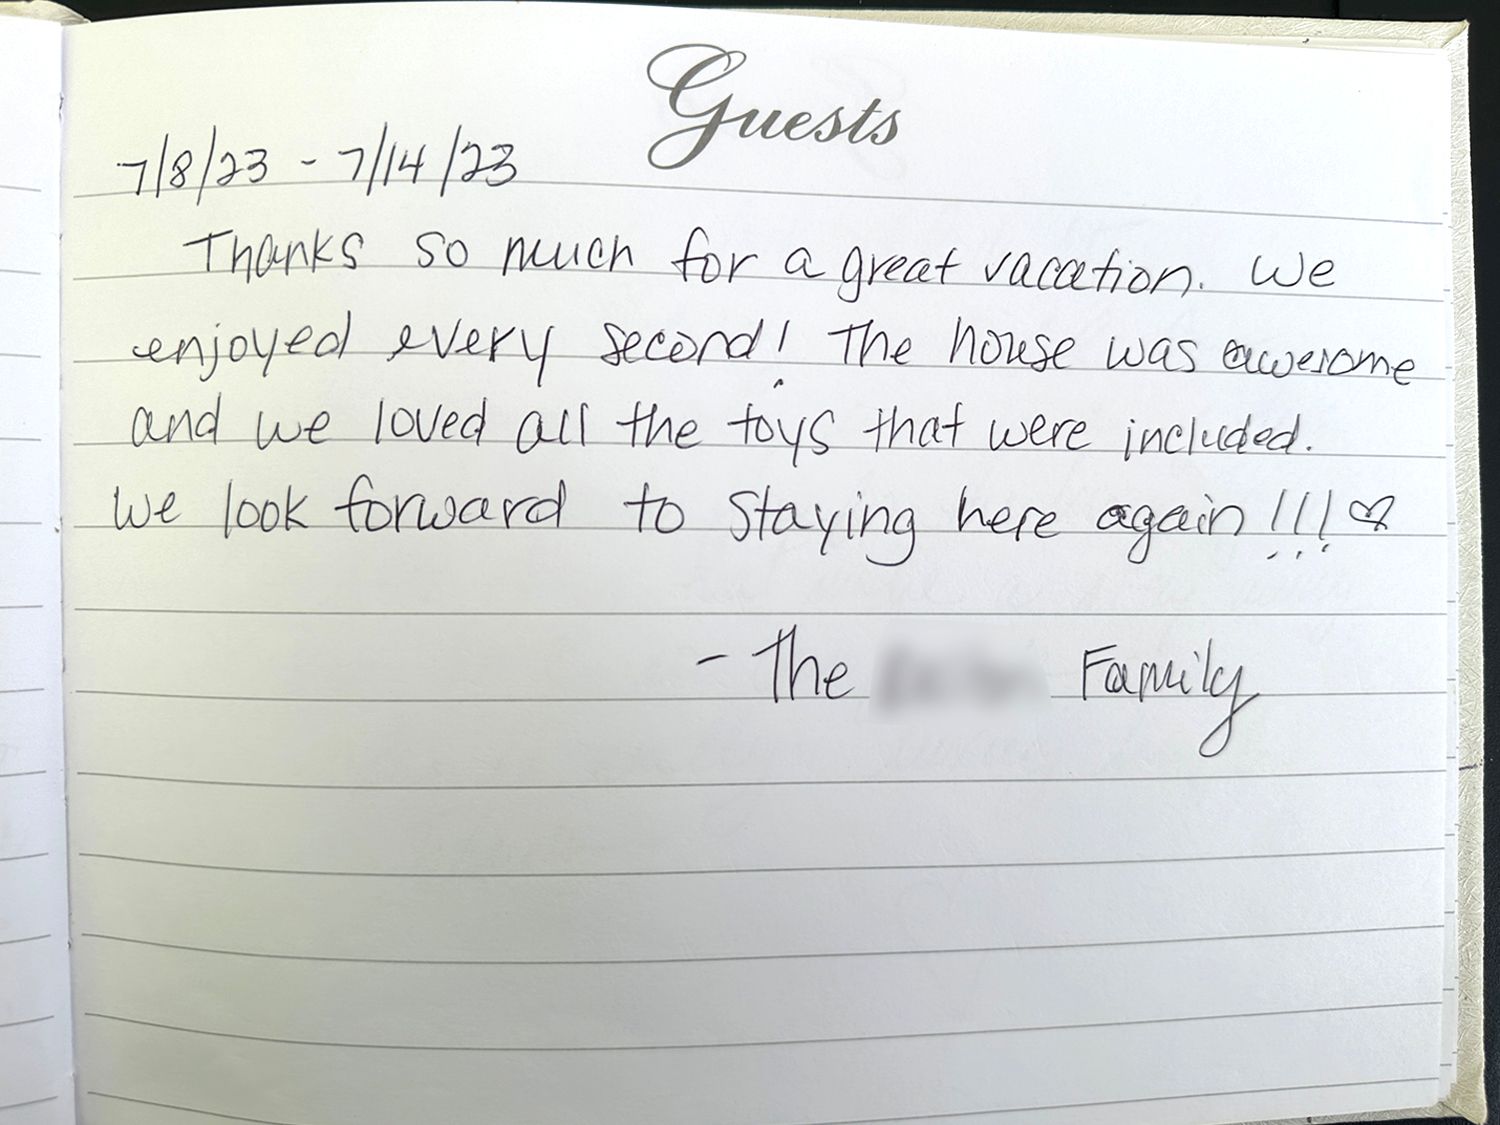 Guests
7/8/23 - 7/14/23
Thanks so much for a great vacation. We
enjoyed every second! The house was awesome
and we loved all the toys that were included.
We look forward to staying here again!!! ♡
- The Family